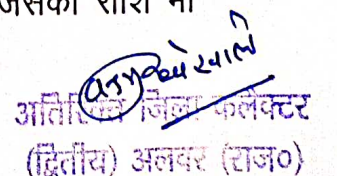 जिसकी राशि मा
अतिरिक्त जिला कलेक्टर
(द्वितीय) अलवर (राज०)